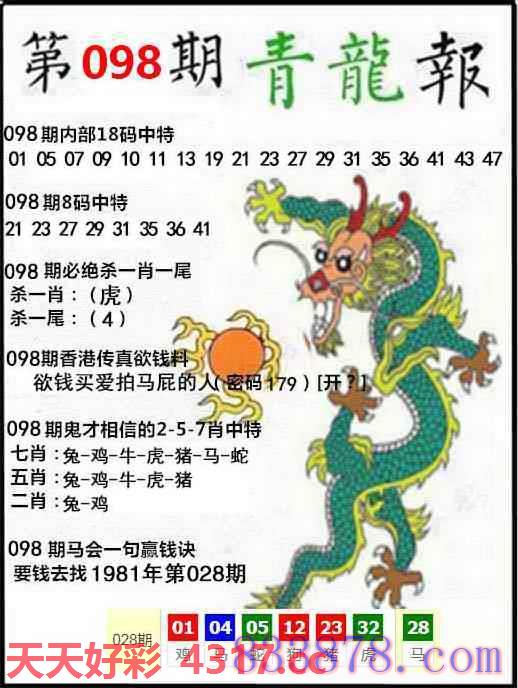 第098期青龍報
098期内部18码中特
01 05 07 09 10 11 13 19 21 23 27 29 31 35 36 41 43 47
098期8码中特
21 23 27 29 31 35 36 41
098 期必绝杀一肖一尾
杀一肖：（虎）
杀一尾：（4）
098期香港传真欲钱料
欲钱买爱拍马屁的人（密码179）[开？]
098期鬼才相信的2-5-7肖中特
七肖：兔-鸡-牛-虎-猪-马-蛇
五肖：兔-鸡-牛-虎-猪
二肖：兔-鸡
098 期马会一句赢钱诀
要钱去找1981年第028期
028期 01 04 05 12 23 32 28
鸡 马 蛇 狗 猪 虎 马
天天好彩 4317.cc